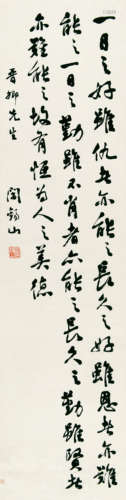 一日之好雖仇者亦能之長久之好雖恩者亦難
能之一日之勤雖不肖者亦能之長久之勤雖賢者
亦難能之故有恒為人之美德
晋卿先生
閻錫山